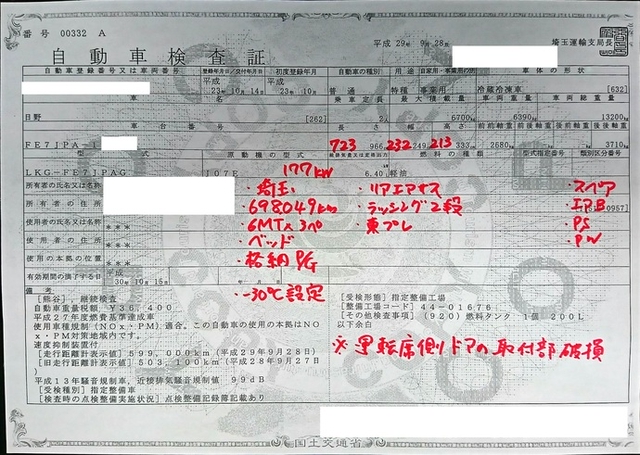 番号 00332 A
平成 29年 9月 28日
埼玉運輸支局長
自動車検査証
自動車登録番号又は車両番号 登録年月日/交付年月日 初度登録年月 自動車の種別 用途 自家用・事業用の別 車体の形状
平成 23年10月14日 平成 23年10月 普通 特種 事業用 冷蔵冷凍車 [632]
車名 乗車定員 最大積載量 車両重量 車両総重量
日野 [262] 2人 6700kg 6390kg 13200kg
長さ 幅 高さ 前前軸重 前後軸重 後前軸重 後後軸重
FE7JPA-1 723 966 232 249 213 333 2680kg 3710kg
型式 原動機の型式 燃料の種類 型式指定番号 類別区分番号
LKG-FE7JPAG J07E 6.40 軽油
177kw
所有者の氏名又は名称 ・埼玉 ・リアエアサス ・スペア
所有者の住所 ・698049km ・ラッシング2段 ・エアB 0957]
使用者の氏名又は名称 *** ・6MT×3ペ ・東プレ ・PS
使用者の住所 *** ・ベッド ・PW
使用の本拠の位置 *** ・格納PG
有効期間の満了する日 平成 30年10月15日
備考 ・-30℃設定
[熊谷], 継続検査
自動車重量税額 ¥36,400
平成27年度燃費基準達成車
使用車種規制(NOx・PM)適合。この自動車の使用の本拠はNO
x・PM対策地域内です。
速度抑制装置付
[走行距離計表示値] 599,000km(平成29年9月28日)
[旧走行距離計表示値] 503,100km(平成28年9月27日
)
平成13年騒音規制車,近接排気騒音規制値 99dB
[受検種別] 指定整備車
[検査時の点検整備実施状況] 点検整備記録簿記載あり
[受検形態] 指定整備工場
[整備工場コード] 44-01676
[その他検査事項] (920)燃料タンク 1個 200L
以下余白
※運転席側ドアの取付部破損
国土交通省